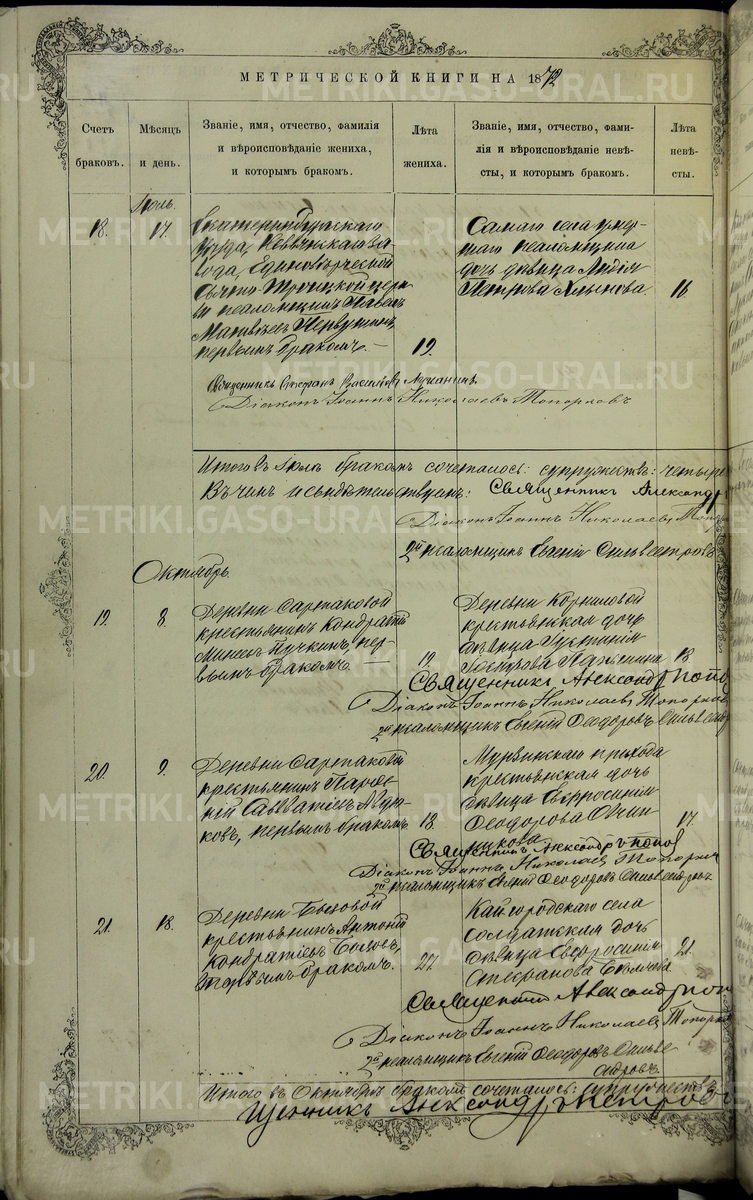 МЕТРИЧЕСКОЙ КНИГИ НА 1872
Счетъ
браковъ.
Мѣсяцъ
и день.
Званіе, имя, отчество, фамилія
и вѣроисповѣданіе жениха,
и которымъ бракомъ.
Лѣта
жениха.
Званіе, имя, отчество, фами-
лія и вѣроисповѣданіе невѣ-
сты, и которымъ бракомъ.
Лѣта
невѣ-
сты.
Іюль.
18.
17.
Екатеринбургскаго
уѣзда, Невьянскаго за-
вода, Единовѣрческой
Свято-Троицкой церк
ви псаломщикъ Павелъ
Матвѣевъ
первымъ бракомъ.
19.
Самаго села умер-
шаго псаломщика
дочь дѣвица Лидія
Петрова Хлынова.
16
Священникъ Стефанъ Васильевъ
Діаконъ Іоаннъ Николаевъ Топорковъ
Итого въ Іюлѣ бракомъ сочеталось: супружествъ: четыре
свидѣтельствуемъ: Священникъ Александръ
Діаконъ Іоаннъ Николаевъ
2й псаломщикъ Евгеній Сильвестровъ
Октябрь.
19.
8.
Деревни Сарпаковой
крестьянинъ Кондратій
Пучкинъ, пер-
вымъ бракомъ.
19.
Деревни Корниловой
крестьянская дочь
дѣвица Іустинія
18
Священникъ Александръ Попо
Діаконъ Іоаннъ Николаевъ Топорков
2й псаломщикъ Евгеній Феодоровъ
20.
9.
Деревни Сарпаковой
крестьянинъ Парѳе-
ній Савватіевъ
ковъ, первымъ бракомъ.
18.
Мурзинскаго прихода
крестьянская дочь
дѣвица Евфросинія
Феодорова Овчин
никова
17.
Священникъ Александръ Попов
Діаконъ Іоаннъ Николаевъ Топорк
2й псаломщикъ Евгеній Феодоровъ Сильвестровъ
21.
18.
Деревни Бызовой
крестьянинъ Антоній
Кондратіевъ Бызовъ,
первымъ бракомъ.
27.
Кайгородскаго села
солдатская дочь
дѣвица Евфросинія
Стефанова
21.
Священникъ Александръ Поп
Діаконъ Іоаннъ Николаевъ Топорк
2й псаломщикъ Евгеній Феодоровъ Сильве
стровъ
Итого въ Октябрѣ бракомъ сочеталось: супружествъ
Александръ
METRIKI.GASO-URAL.RU